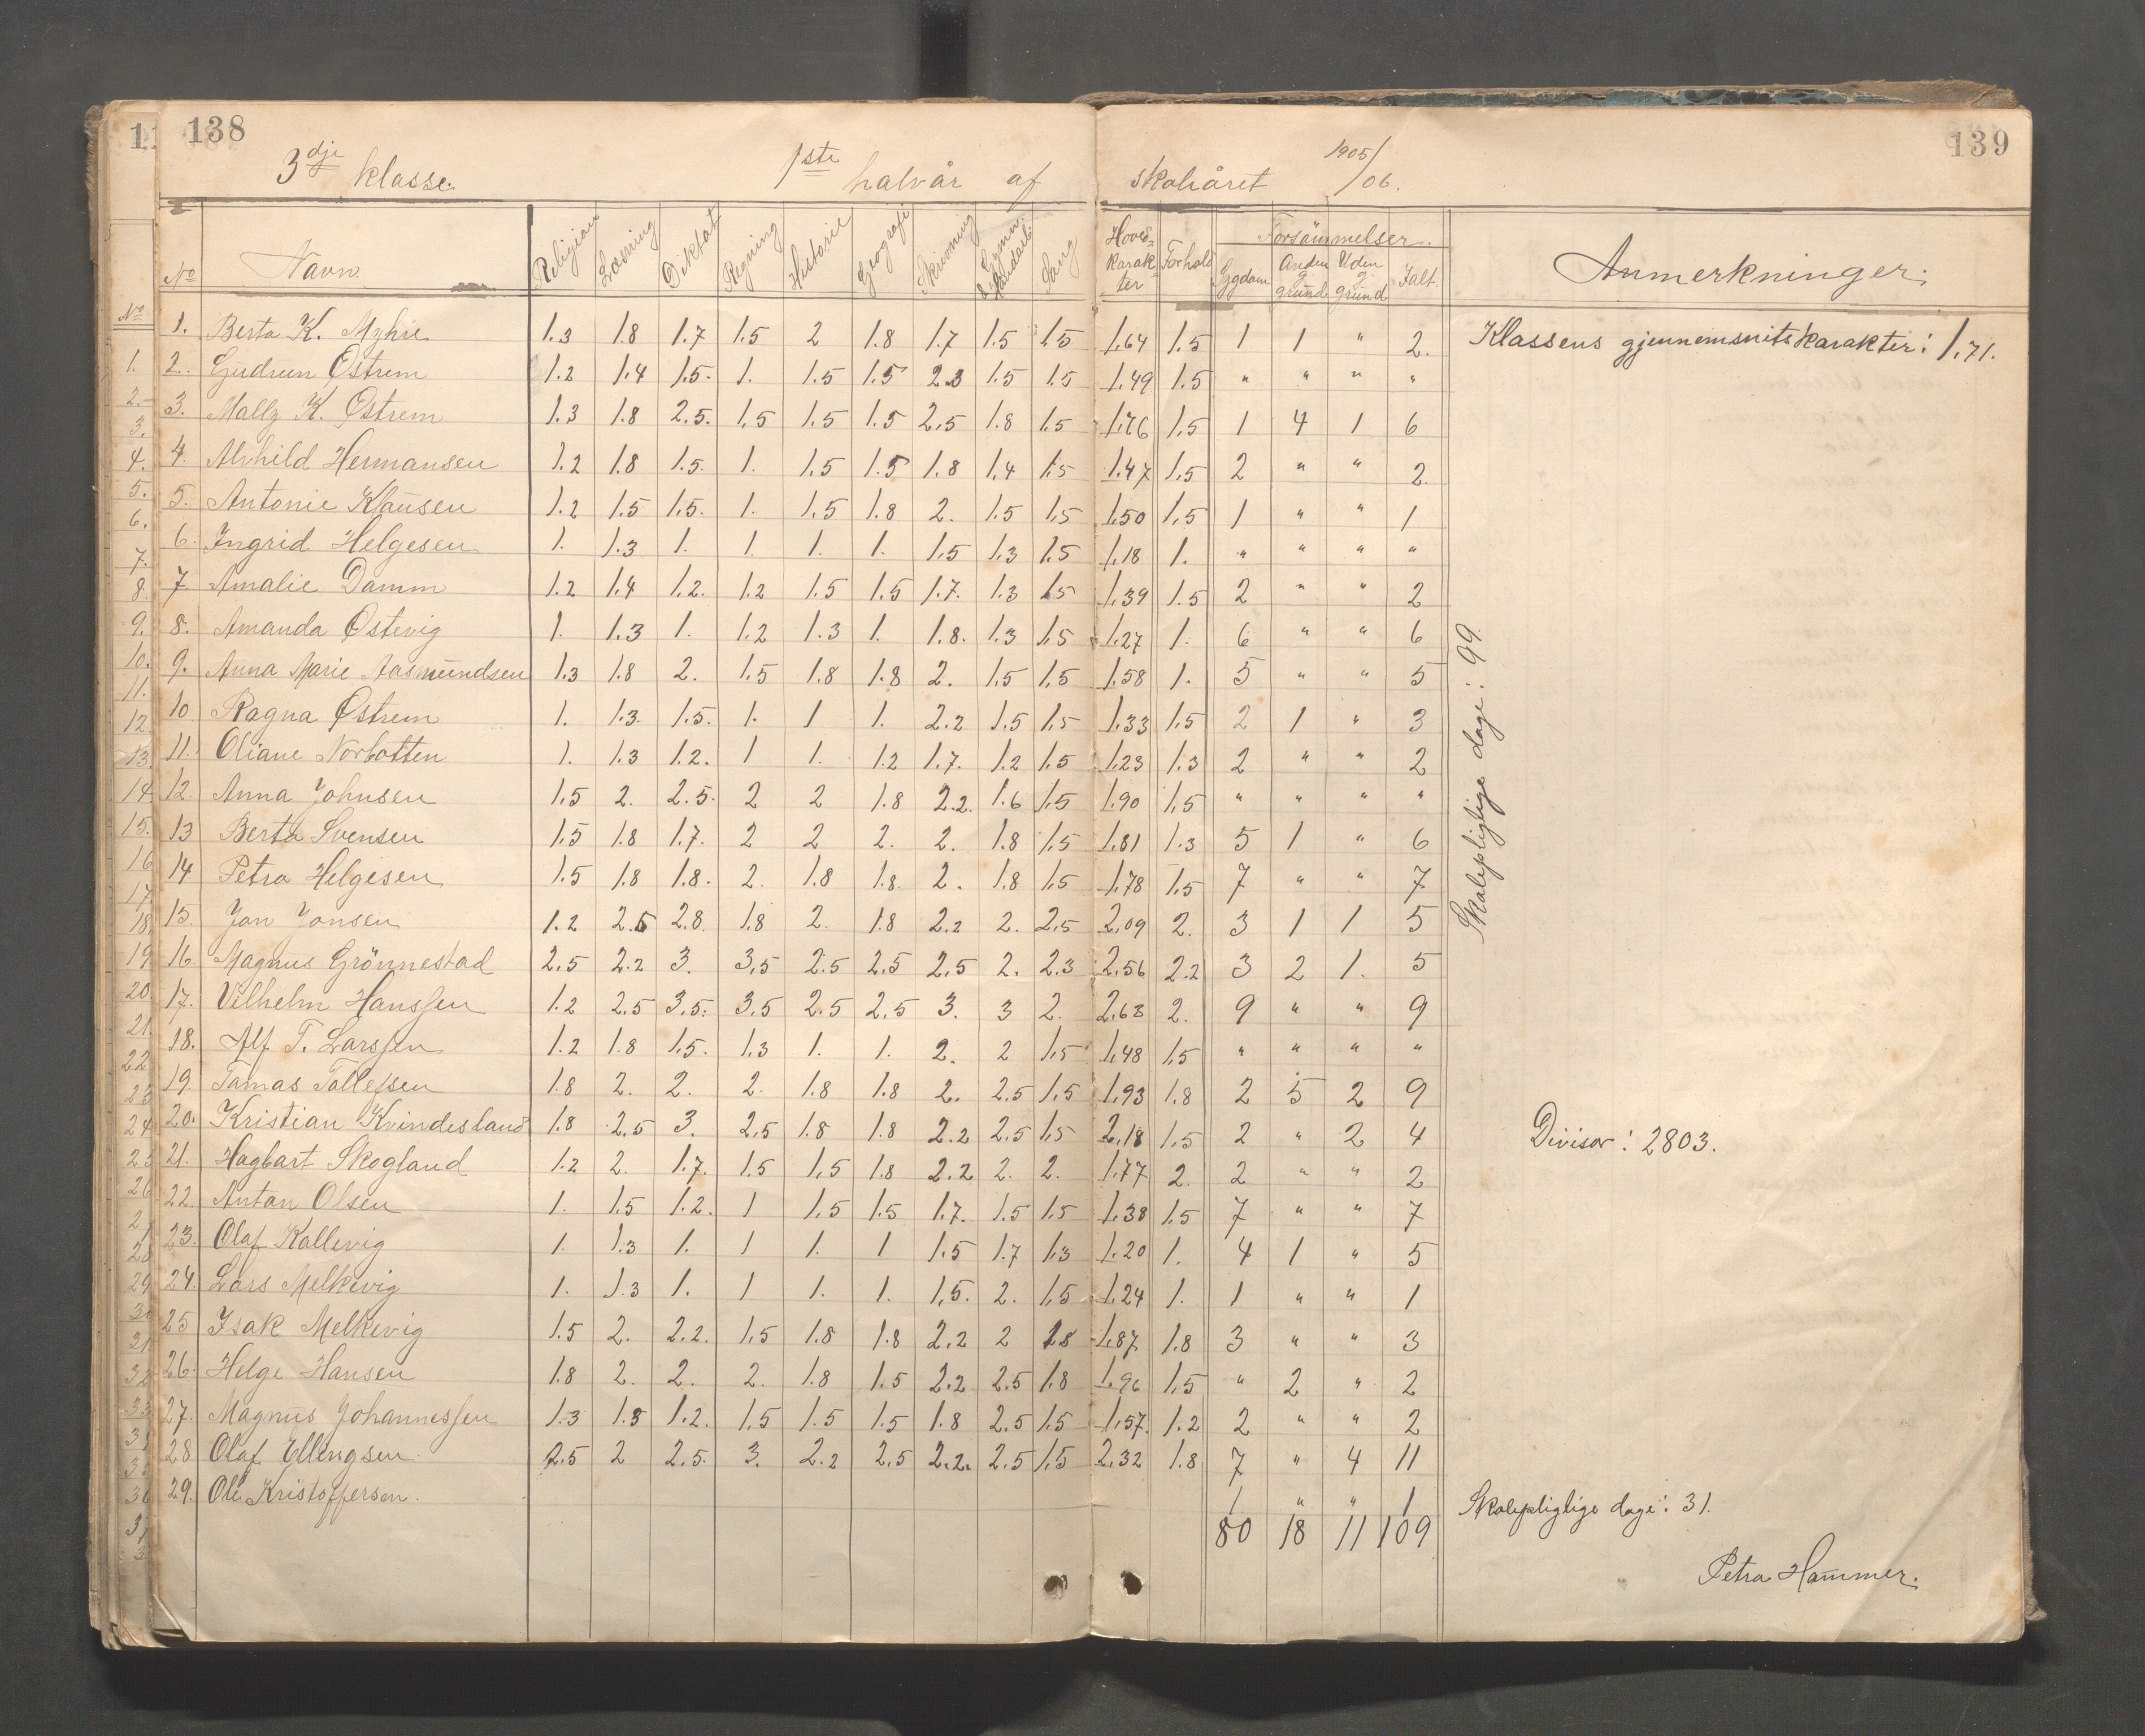 138
139
3dje klasse. 1ste halvår af skoleåret 1905/06.
No Navn. Religion Læsning Diktat Regning Historie Geografi Skrivning Gymn. & Håndarb. Sang Hoved-karak-ter Forhold Forsömmelser. Sygdom Anden g. grund Uden g. grund Ialt. Anmerkninger.
1. Berta K. Myhre 1.3 1.8 1.7 1.5 2 1.8 1.7 1.5 1.5 1.64 1.5 1 1 " 2. Klassens gjennemsnitskarakter: 1.71.
2. Gudrun Østrem 1.2 1.4 1.5. 1. 1.5 1.5 2.3 1.5 1.5 1.49 1.5 " " " "
3. Mally K. Østrem 1.3 1.8 2.5. 1.5 1.5 1.5 2.5 1.8 1.5 1.76 1.5 1 4 1 6
4. Alvhild Hermansen 1.2 1.8 1.5. 1. 1.5 1.5 1.8 1.4 1.5 1.47 1.5 2 " " 2.
5. Antonie Klausen 1.2 1.5 1.5. 1. 1.5 1.8 2. 1.5 1.5 1.50 1.5 1 " " 1
6. Ingrid Helgesen 1. 1.3 1. 1. 1. 1. 1.5 1.3 1.5 1.18 1. " " " "
7. Amalie Damm 1.2 1.4 1.2. 1.2 1.5 1.5 1.7. 1.3 1.5 1.39 1.5 2 " " 2
8. Amanda Østevig 1. 1.3 1. 1.2 1.3 1. 1.8. 1.3 1.5 1.27 1. 6 " " 6
9. Anna Marie Aasmundsen 1.3 1.8 2. 1.5 1.8 1.8 2. 1.5 1.5 1.58 1. 5 " " 5
10 Ragna Østrem 1. 1.3. 1.5. 1. 1 1. 2.2 1.5 1.5 1.33 1.5 2 1 " 3
11. Oliane Norbotten 1. 1.3 1.2. 1 1. 1.2 1.7. 1.2 1.5 1.23 1.3 2 " " 2
12. Anna Johnsen 1.5 2. 2.5. 2 2 1.8 2.2. 1.6 1.5 1.90 1.5 " " " "
13 Berta Svensen 1.5 1.8 1.7. 2 2 2. 2. 1.8 1.5 1.81 1.3 5 1 " 6
14 Petra Helgesen 1.5 1.8 1.8. 2. 1.8 1.8. 2. 1.8 1.5 1.78 1.5 7 " " 7
15. Jon Jonsen 1.2 2.5 2.8. 1.8 2. 1.8 2.2 2. 2.5 2.09 2. 3 1 1 5
16. Magnus Grönnestad 2.5 2.2 3. 3.5 2.5 2.5 2.5 2. 2.3 2.56 2.2 3 2 1. 5
17. Vilhelm Hanssen 1.2 2.5 3.5. 3.5 2.5 2.5 3. 3 2. 2.63 2. 9 " " 9
18. Alf T. Larssen 1.2 1.8 1.5. 1.3 1. 1. 2. 2 1.5 1.48 1.5 " " " "
19 Tomas Tollefsen 1.8 2. 2. 2. 1.8 1.8 2. 2.5 1.5 1.93 1.8 2 5 2 9
20. Kristian Kvindesland 1.8 2.5 3. 2.5 1.8 1.8 2.2 2.5 1.5 2.18 1.5 2 " 2 4
21. Hagbart Skogland 1.2 2. 1.7. 1.5 1.5 1.8 2.2 2. 2. 1.77 2. 2 " " 2
22. Anton Olsen 1. 1.5 1.2. 1 1.5 1.5 1.7. 1.5 1.5 1.38 1.5 7 " " 7
23. Olaf Kallevig 1. 1.3 1. 1 1. 1 1.5 1.7 1.3 1.20 1. 4 1 " 5
24. Lars Melkevig 1. 1.3 1. 1 1. 1. 1.5. 2. 1.5 1.24 1. 1 " " 1
25 Isak Melkevig 1.5 2. 2.2. 1.5 1.8 1.8 2.2 2 1.8 1.87 1.8 3 " " 3
26. Helge Hansen 1.8 2. 2. 2. 1.8 1.5 2.2 2.5 1.8 1.96 1.5 " 2 " 2
27. Magnus Johannessen 1.3 1.8 1.2. 1.5 1.5 1.5 1.8 2.5 1.5 1.57. 1.2 2 " " 2
28 Olaf Ellingsen 2.5 2 2.5. 3. 2.2 2.5 2.2. 2.5 1.5 2.32 1.8 7 " 4 11
29. Ole Kristoffersen. 1 " " 1 Skolepligtige dage: 31.
80 18 11 109
Skolepligtige dage: 99.
Divisor: 2803.
Petra Hammer.